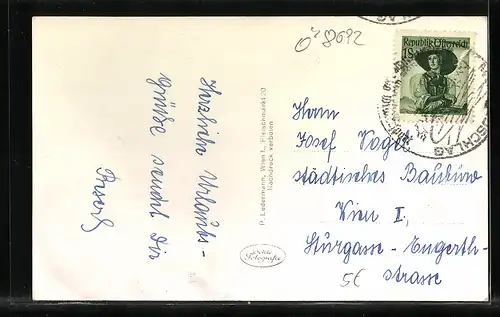 Ö² 8692
Herzliche Urlaubs-
grüße sendet Dir
P. Ledermann, Wien I., Fleischmarkt 20
Nachdruck verboten
Echte
Fotografie
Republik Österreich
SCHLAG
Herrn
Josef Vogel
städtisches Baubüro
Wien I,
Sturgasse - Engerth-
strasse
5€